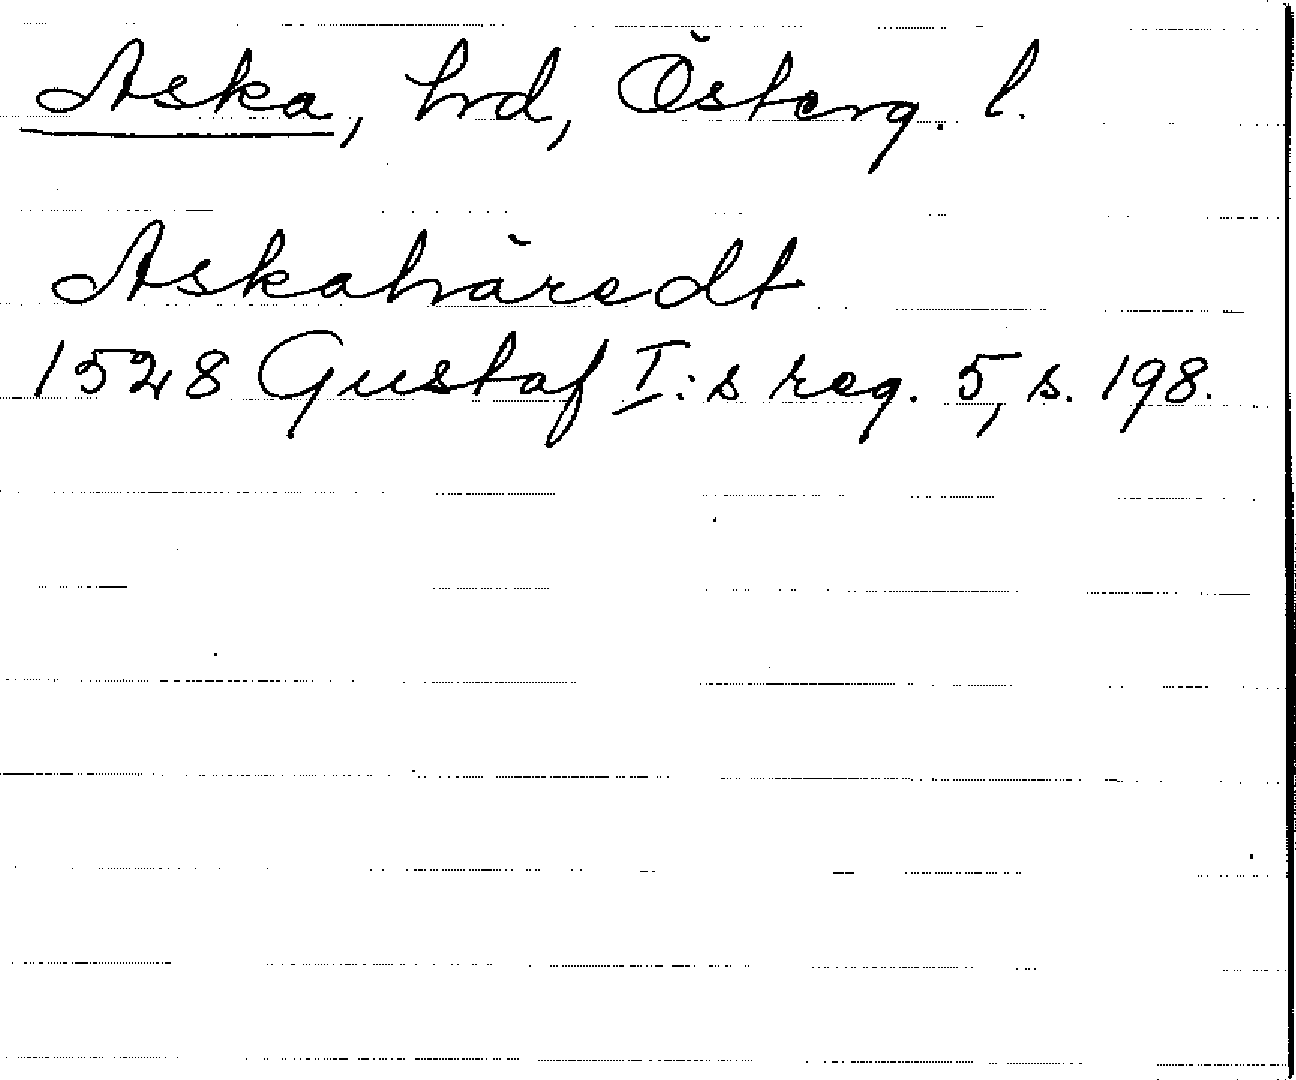 Aska, hrd, Österg. l.
Askahäredt
1528 Gustaf I:s reg. 5, s. 198.